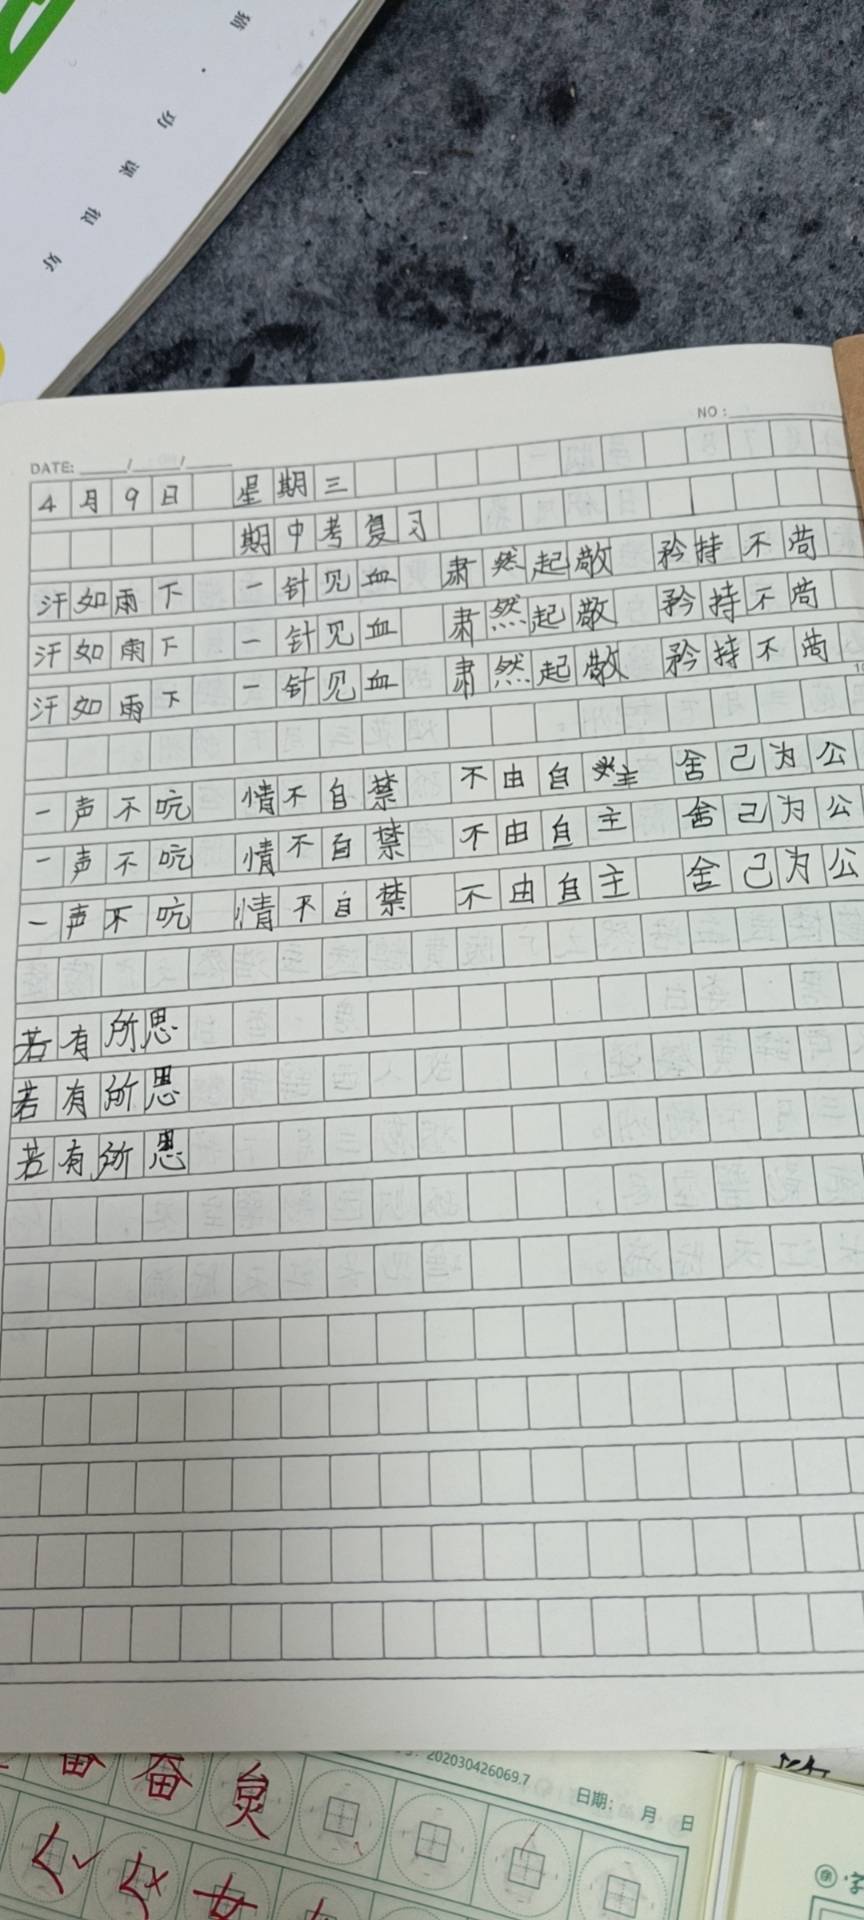 功课很好
NO:
DATE: / /
4月9日 星期三
期中考复习
汗如雨下 一针见血 肃然起敬 矜持不苟
汗如雨下 一针见血 肃然起敬 矜持不苟
汗如雨下 一针见血 肃然起敬 矜持不苟
一声不吭 情不自禁 不由自主 舍己为公
一声不吭 情不自禁 不由自主 舍己为公
一声不吭 情不自禁 不由自主 舍己为公
若有所思
若有所思
若有所思
202030426069.7
日期: 月 日
奋